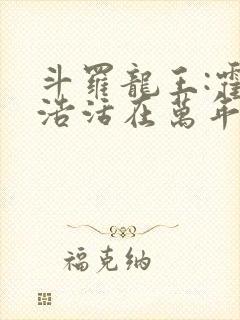 斗羅龍王:霍
浩活在萬年
福克納